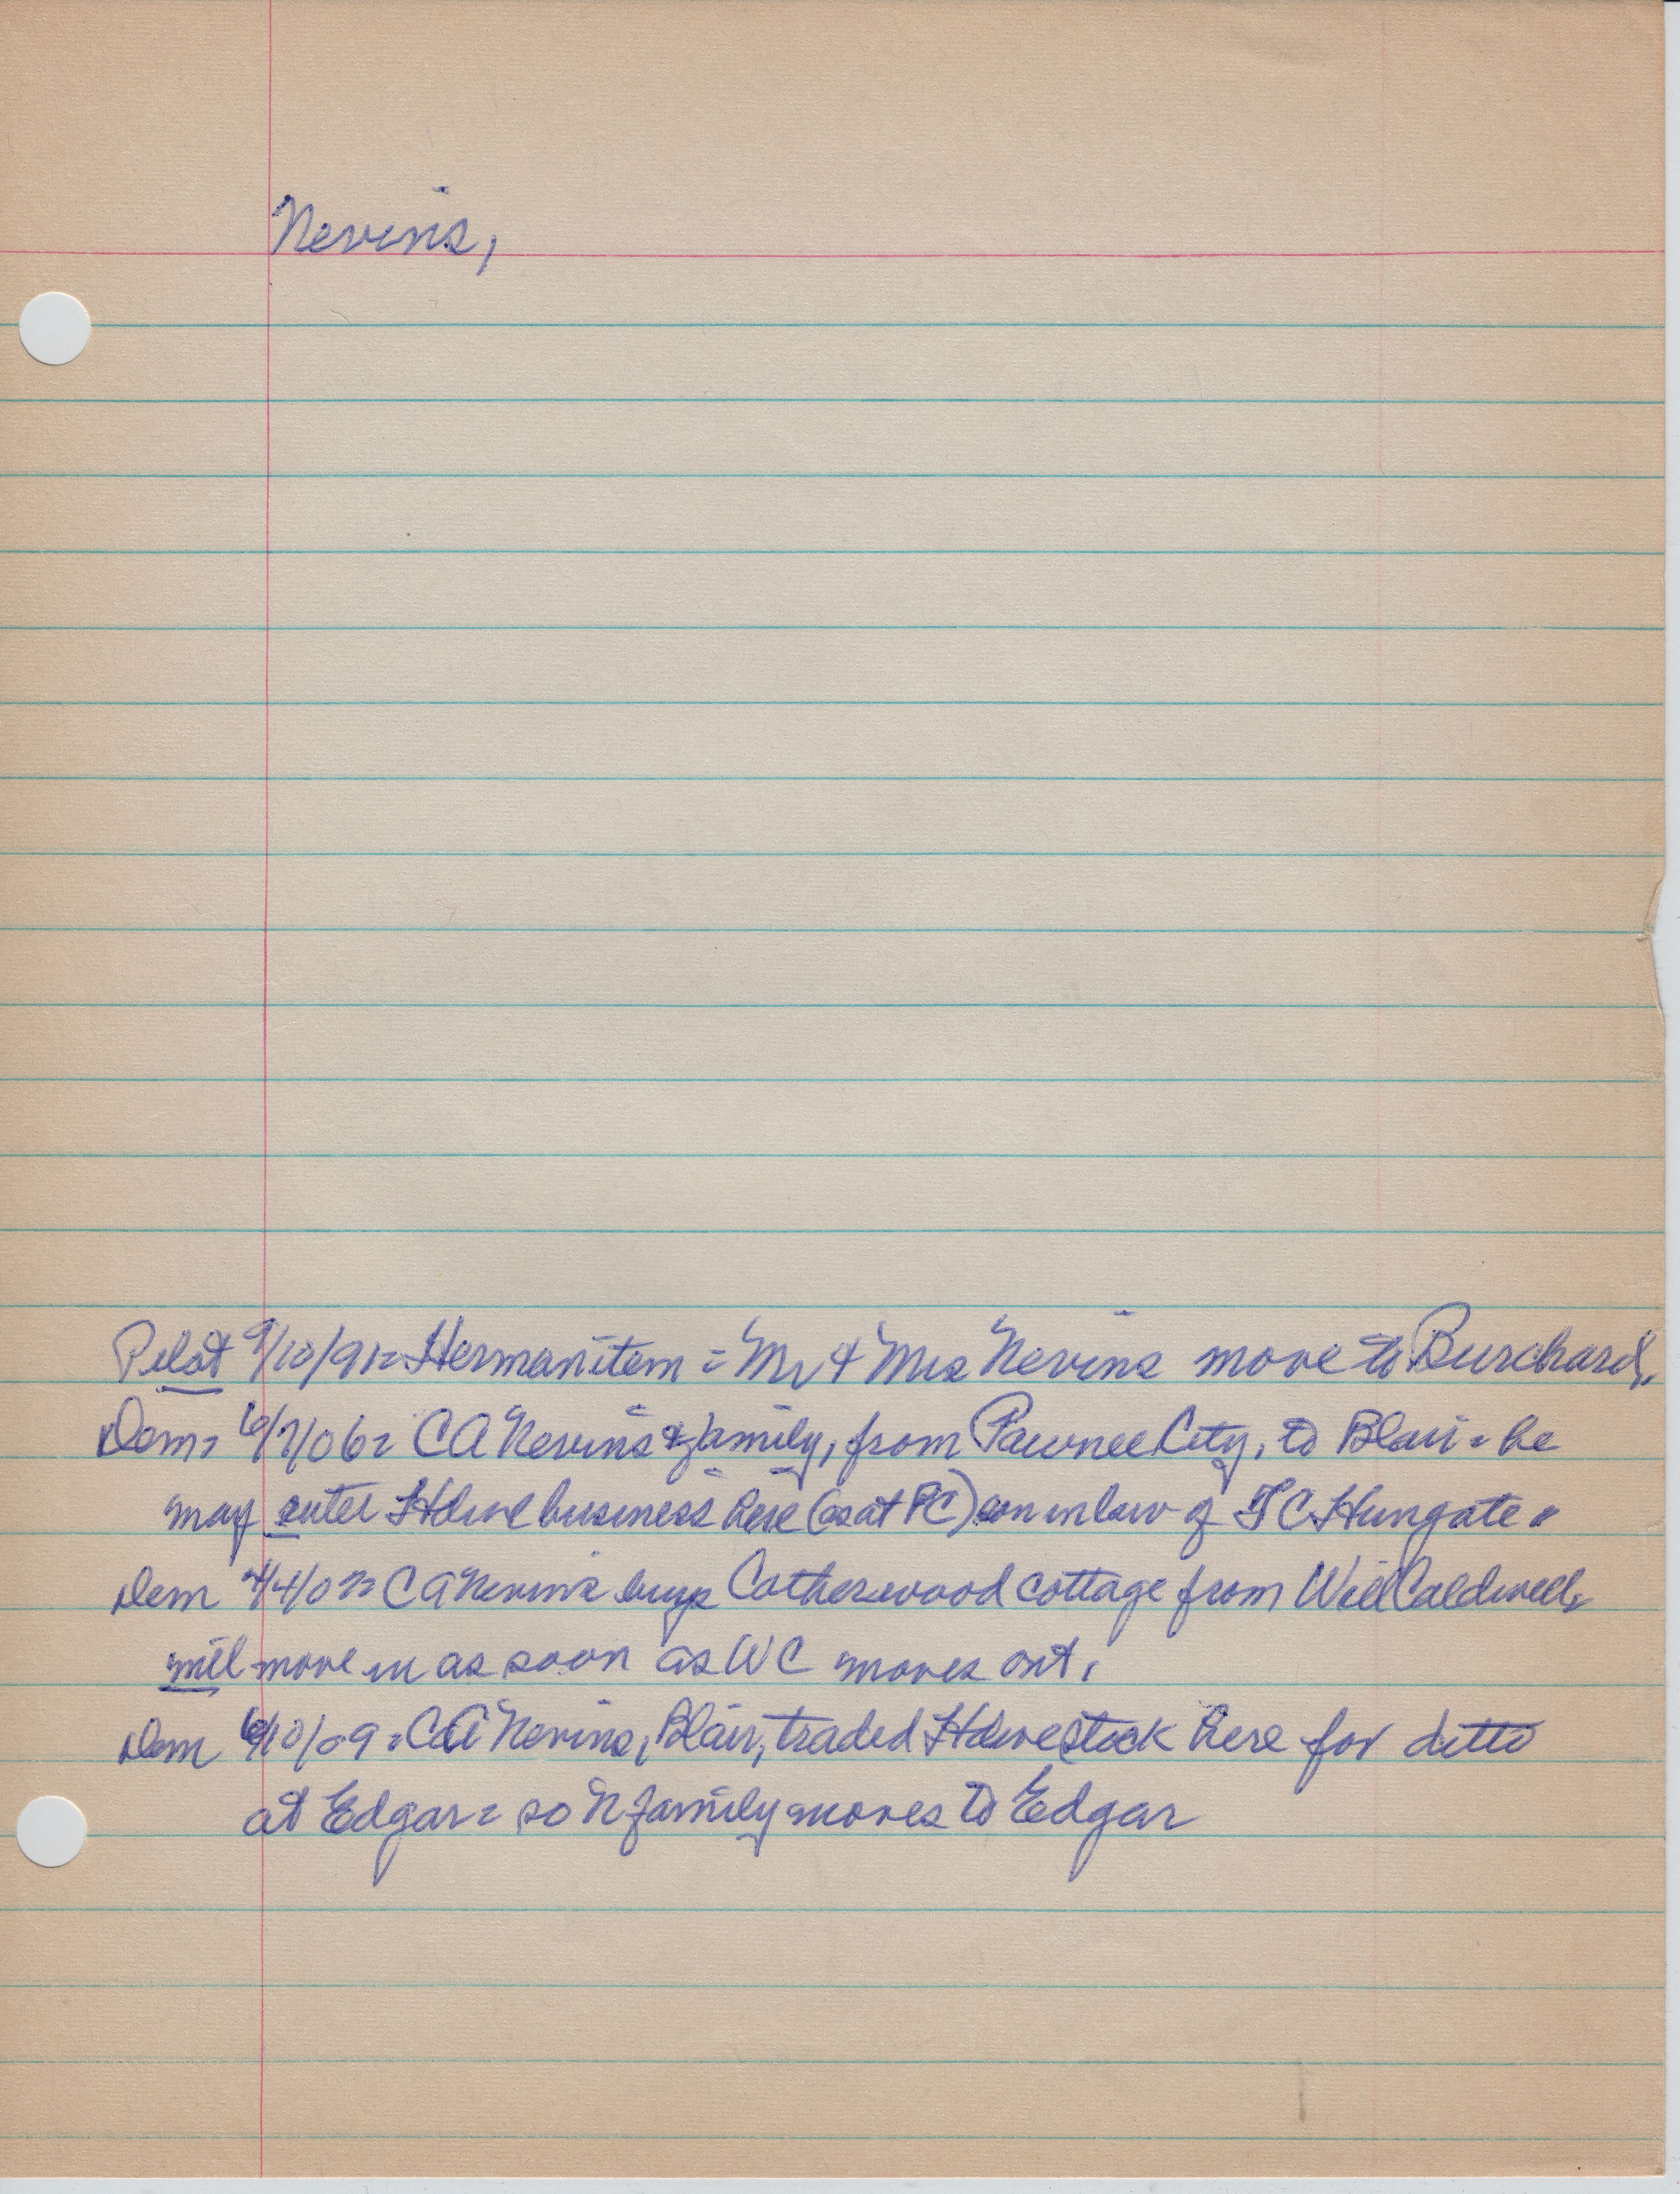 Nevins,
Pilot 9/10/91= Herman item = Mr & Mrs Nevins move to Burchard.
Dem= 6/7/06= CA Nevins & family, from Pawnee City, to Blair = he
may enter Hdwe business here (as at PC) son in law of T C Hungate.
Dem 4/4/07= CA Nevins buys Catherwood cottage from Will Caldwell,
will move in as soon as WC moves out.
Dem 6/10/09 = CA Nevins, Blair, traded Hdwe stock here for ditto
at Edgar = so N family moves to Edgar